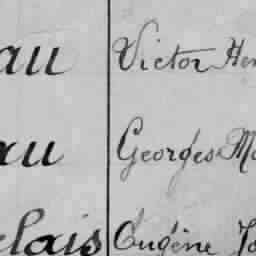 au Victor Hen
au Georges Ma
elais Eugène Jo